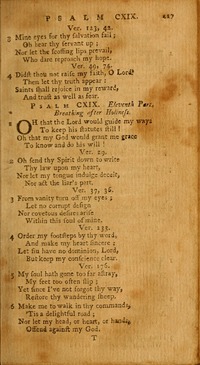 PSALM CXIX. 227
Ver. 123, 42.
3 Mine eyes for thy salvation fail;
Oh bear thy servant up;
Nor let the scoffing lips prevail,
Who dare reproach my hope.
Ver. 49, 74.
4 Didst thou not raise my faith, O Lord?
Then let thy truth appear:
Saints shall rejoice in my reward,
And trust as well as fear.
PSALM CXIX. Eleventh Part.
Breathing after Holiness.
OH that the Lord would guide my ways
To keep his statutes still!
Oh that my God would grant me grace
To know and do his will!
Ver. 29.
2 Oh send thy Spirit down to write
Thy law upon my heart,
Nor let my tongue indulge deceit,
Nor act the liar's part.
Ver. 37, 36.
3 From vanity turn off my eyes;
Let no corrupt design
Nor covetous desires arise
Within this soul of mine.
Ver. 133.
4 Order my footsteps by thy word,
And make my heart sincere;
Let sin have no dominion, Lord,
But keep my conscience clear.
Ver. 176.
5 My soul hath gone too far astray,
My feet too often slip;
Yet since I've not forgot thy way,
Restore thy wandering sheep.
6 Make me to walk in thy commands,
'Tis a delightful road;
Nor let my head, or heart, or hands,
Offend against my God.
T